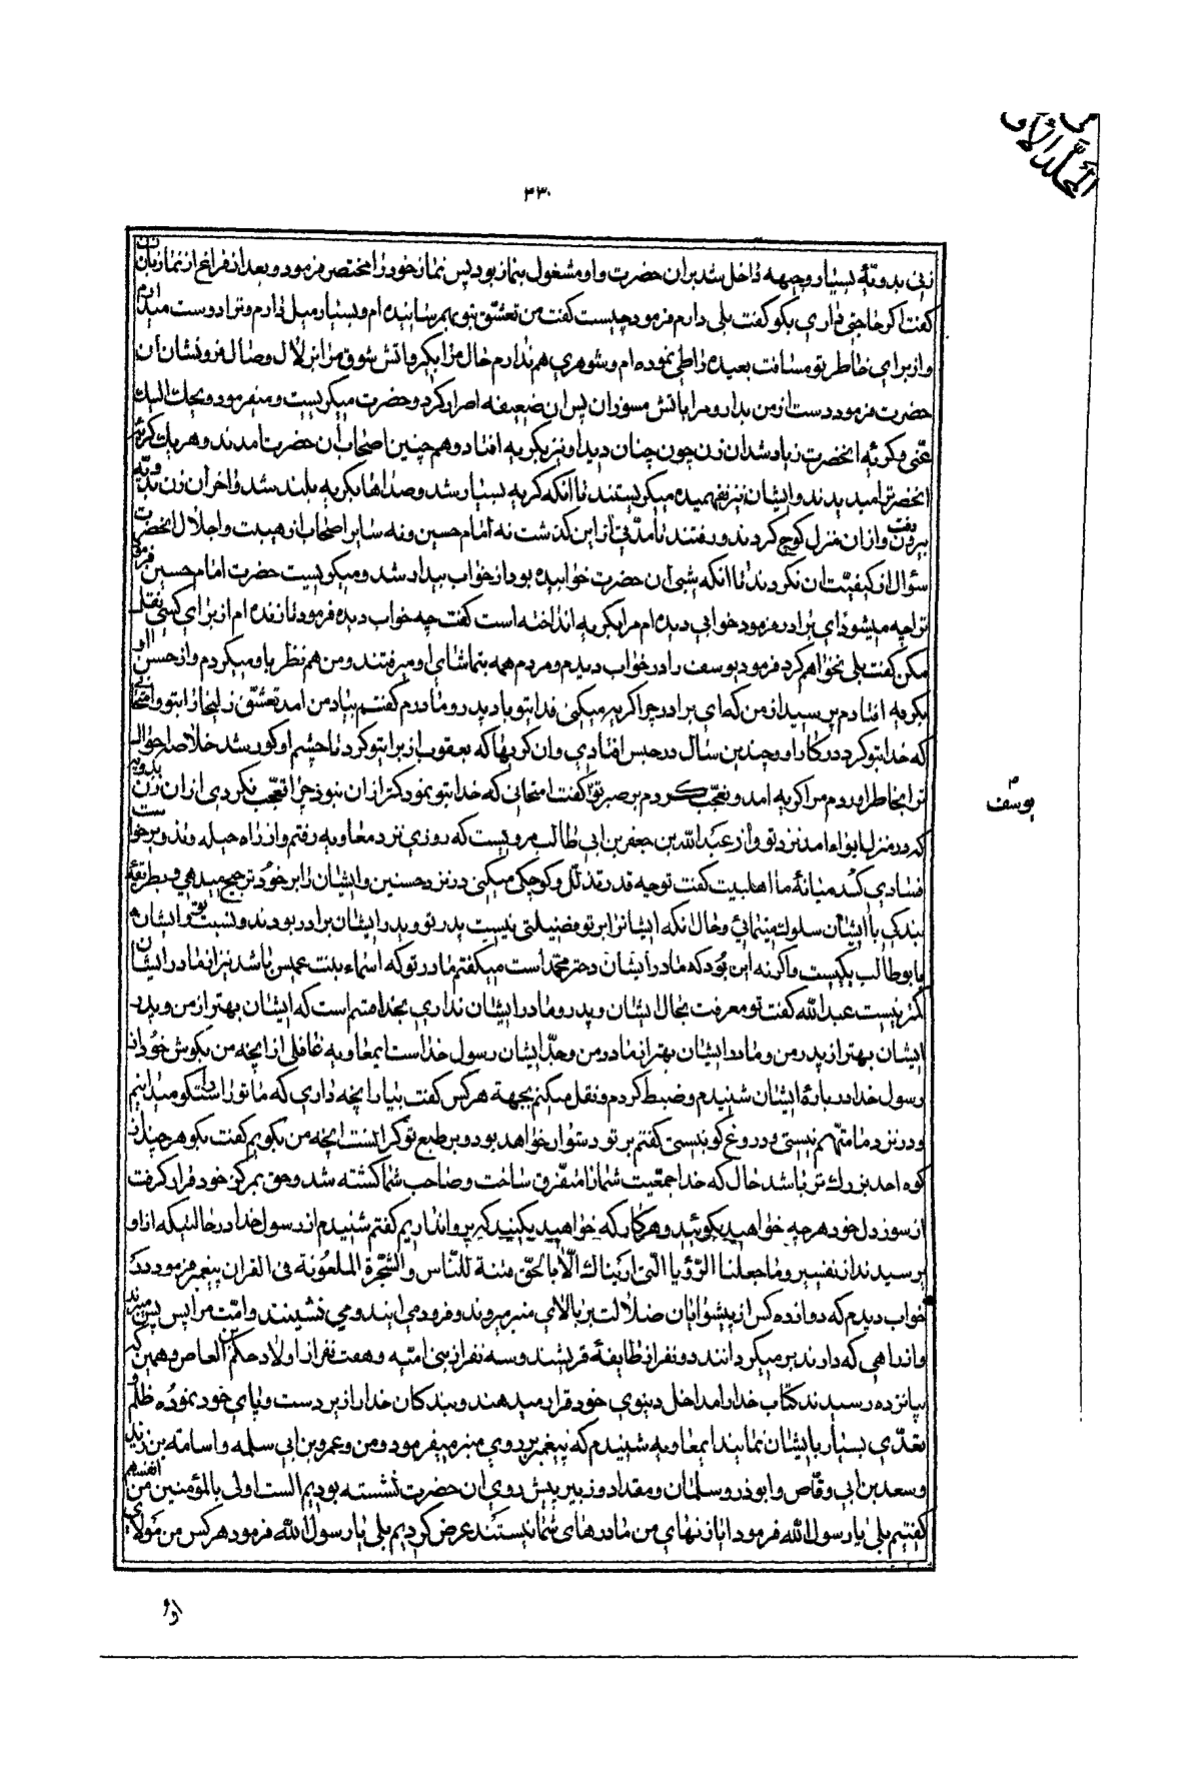 المجلد الأول
۴۳۰
زنی بدویّهٔ بسیار وجیهه داخل شد بران حضرت واو مشغول بنماز بود پس نماز خود را مختصر فرمود و بعد از فراغ از نماز بان زن
گفت اگر حاجتی داری بگو گفت بلی دارم فرمود چیست گفت من تعشّق بتو بهم رسانیده ام و بسیار میل دارم و ترا دوست میدارم
واز برای خاطر تو مسافت بعیده را طی نموده ام و شوهری هم ندارم حال مرا بگیر واتش شوق مرا بزلال وصال فرونشان ان
حضرت فرمود دست از من بدار و مرا باتش مسوزان پس ان ضعیفه اصرار کرد و حضرت میگریست و میفرمود ویحك الیك
عنّی و گریهٔ انحضرت زیاد شد ان زن چون چنان دید او نیز بگریه افتاد و هم چنین اصحاب ان حضرت امدند و هر یك گریهٔ
انحضرترا میدیدند و ایشان نیز نفهمیده میگریستند تا انکه گریه بسیار شد و صداها بگریه بلند شد و اخر ان زن بدویه
بیرون رفت و ازان منزل کوچ کردند و رفتند تا مدّتی از این گذشت نه امام حسین و نه سایر اصحاب از هیبت و اجلال انحضرت
سؤال از کیفیّت ان نکردند تا انکه شبی ان حضرت خوابیده بود از خواب بیدار شد و میگریست حضرت امام حسین فرمود
ترا چه میشود ای برادر فرمود خوابی دیده ام مرا بگریه انداخته است گفت چه خواب دیده فرمود تا زنده ام از برای کسی نقل
مکن گفت بلی نخواهم کرد فرمود یوسف را در خواب دیدم و مردم همه بتماشای او میرفتند و من هم نظر باو میکردم و از حسن او
بگریه افتادم پرسید از من که ای برادر چرا گریه میکنی فدا بتو باد پدر و مادرم گفتم بیاد من امد تعشّق زلیخا را بتو و امتحانی
که خدا بتو کرد در کار او و چندین سال در حبس افتادی وان گریها که یعقوب از برا بتو کرد تا چشم او کور شد خلاصه احوال
ترا بخاطر اوردم مرا گریه امد و تعجّب کردم بر صبر تو گفت امتحانی که خدا بتو نمود کمتر از ان نبود چرا تعجّب نکردی از ان زن بدویه
که در منزل ابواء امد نزد تو و از عبد الله بن جعفر بن ابی طالب مرویست که روزی نزد معاویه رفتم و از راه حیله و تذویر خواست
فسادی کند میانهٔ ما اهلبیت گفت تو چه قدر تذلّل و کوچکی میکنی در نزد حسنین و ایشان را بر خود ترجیح میدهی و بطریقهٔ
بندگی با ایشان سلوك مینمائی و حال انکه ایشانرا بر تو فضیلتی نیست پدر تو و پدر ایشان برادر بودند و نسبت تو و ایشان
با بوطالب یکیست و اگر نه این بود که مادر ایشان دختر محمّد است میگفتم مادر تو که اسماء بنت عمیس باشد نیز از مادر ایشان
کمتر نیست عبد الله گفت تو معرفت بحال ایشان و پدر و مادر ایشان نداری بخدا قسم است که ایشان بهتر از من و پدر
ایشان بهتر از پدر من و مادر ایشان بهتر از مادر من و جدّ ایشان رسول خداست ایمعاویه غافلی از انچه من بگوش خود از
رسول خدا در بارهٔ ایشان شنیدم و ضبط کردم و نقل میکنم بجهة هر کس گفت بیار انچه داری که ما تو را راستگو میدانیم
و در نزد ما متّهم نیستی و دروغ گو نیستی گفتم بر تو دشوار خواهد بود و بر طبع تو گرانست انچه من بگویم گفت بگو هر چند از
کوه احد بزرك تر باشد حال که خدا جمعیت شما را متفرّق ساخت و صاحب شما کشته شد و حق بمرکز خود قرار گرفت
از سوز دل خود هر چه خواهید بگوئید و هر کار که خواهید بکنید که پروا نداریم گفتم شنیدم از رسول خدا در حالتیکه از او
پرسیدند از تفسیر و ما جعلنا الرّؤیا الّتی اریناك الّا بالحقّ فتنة للنّاس و الشّجرة الملعونة فی القران پیغمبر فرمود در
خواب دیدم که دوازده کس از پیشوایان ضلالت بر بالای منبر میروند و فرود می ایند و می نشینند و امّت مرا پس پس میبرند
و از راهی که دارند بر میگردانند دو نفر از طایفهٔ قریشند و سه نفر از بنی امیّه و هفت نفر از اولاد حکم بن العاص و همین که
بپانزده رسیدند کتاب خدا را مداخل دنیوی خود قرار میدهند و بندگان خدا را زبر دست و پای خود نموده ظلم و
تعدّی بسیار بایشان نمایند ایمعاویه شنیدم که پیغمبر بر روی منبر میفرمود و من و عمرو بن ابی سلمه و اسامة بن زید
و سعد بن ابی وقّاص و ابوذر و سلمان و مقداد و زبیر پیش روی ان حضرت نشسته بودیم الست اولی بالمؤمنین من انفسهم
گفتیم بلی یا رسول الله فرمود ایا زنهای من مادرهای شما نیستند عرض کردیم بلی یا رسول الله فرمود هر کس من مولای
یوسف م
او